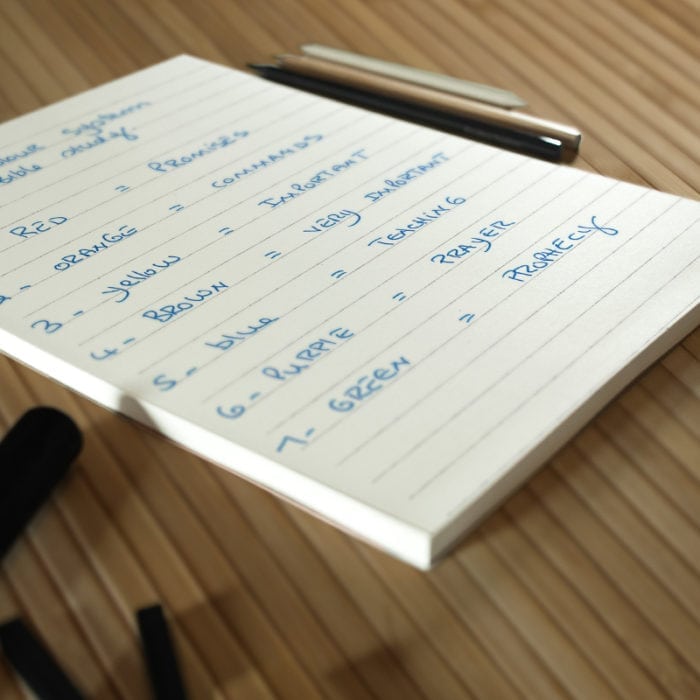 our System
Bible study.
RED = PROMISES
2 - ORANGE = COMMANDS
3 - yellow = IMPORTANT
4 - BROWN = VERY IMPORTANT
5 - blue = TEACHING
6 - PURPLE = PRAYER
7 - GREEN = PROPHECY